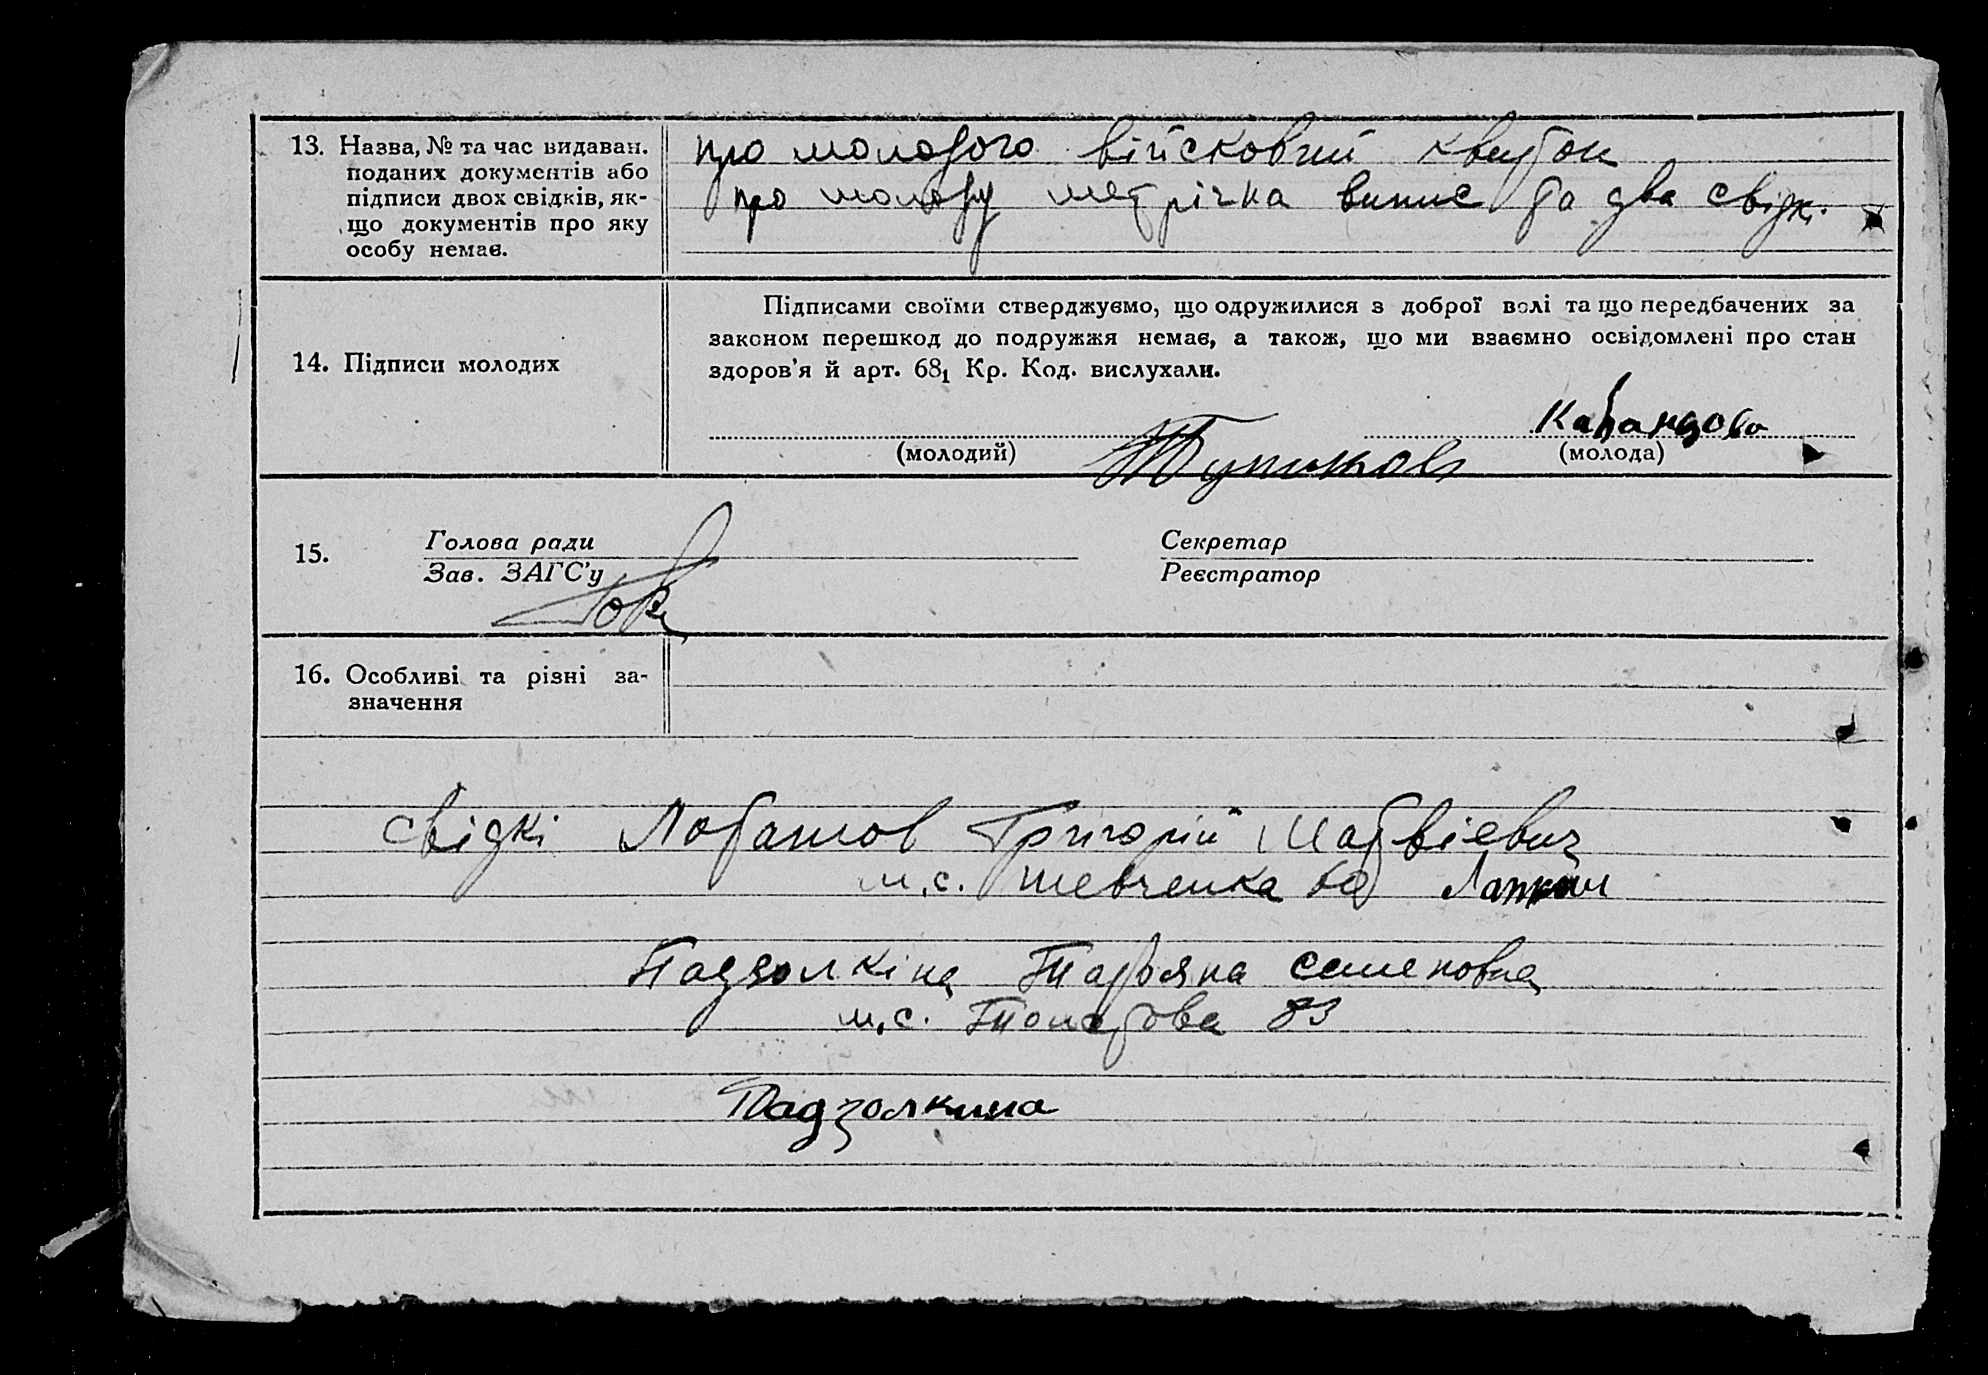 13. Назва, № та час видаван.
поданих документів або
підписи двох свідків, як-
що документів про яку
особу немає.
про молодого військовий квиток
про молоду метрічка випис та два свідк.
14. Підписи молодих
Підписами своїми стверджуємо, що одружилися з доброї волі та що передбачених за
законом перешкод до подружжя немає, а також, що ми взаємно освідомлені про стан
здоров'я й арт. 68₁ Кр. Код. вислухали.
(молодий)
(молода)
15.
Голова ради
Зав. ЗАГС'у
Секретар
Реєстратор
16. Особливі та різні за-
значення
свідкі Лобашов Григорій Матвіевич
м.с. Шевченка
Падзолкіна Татьяна Семеновна
м.с. 83
Падзолкина